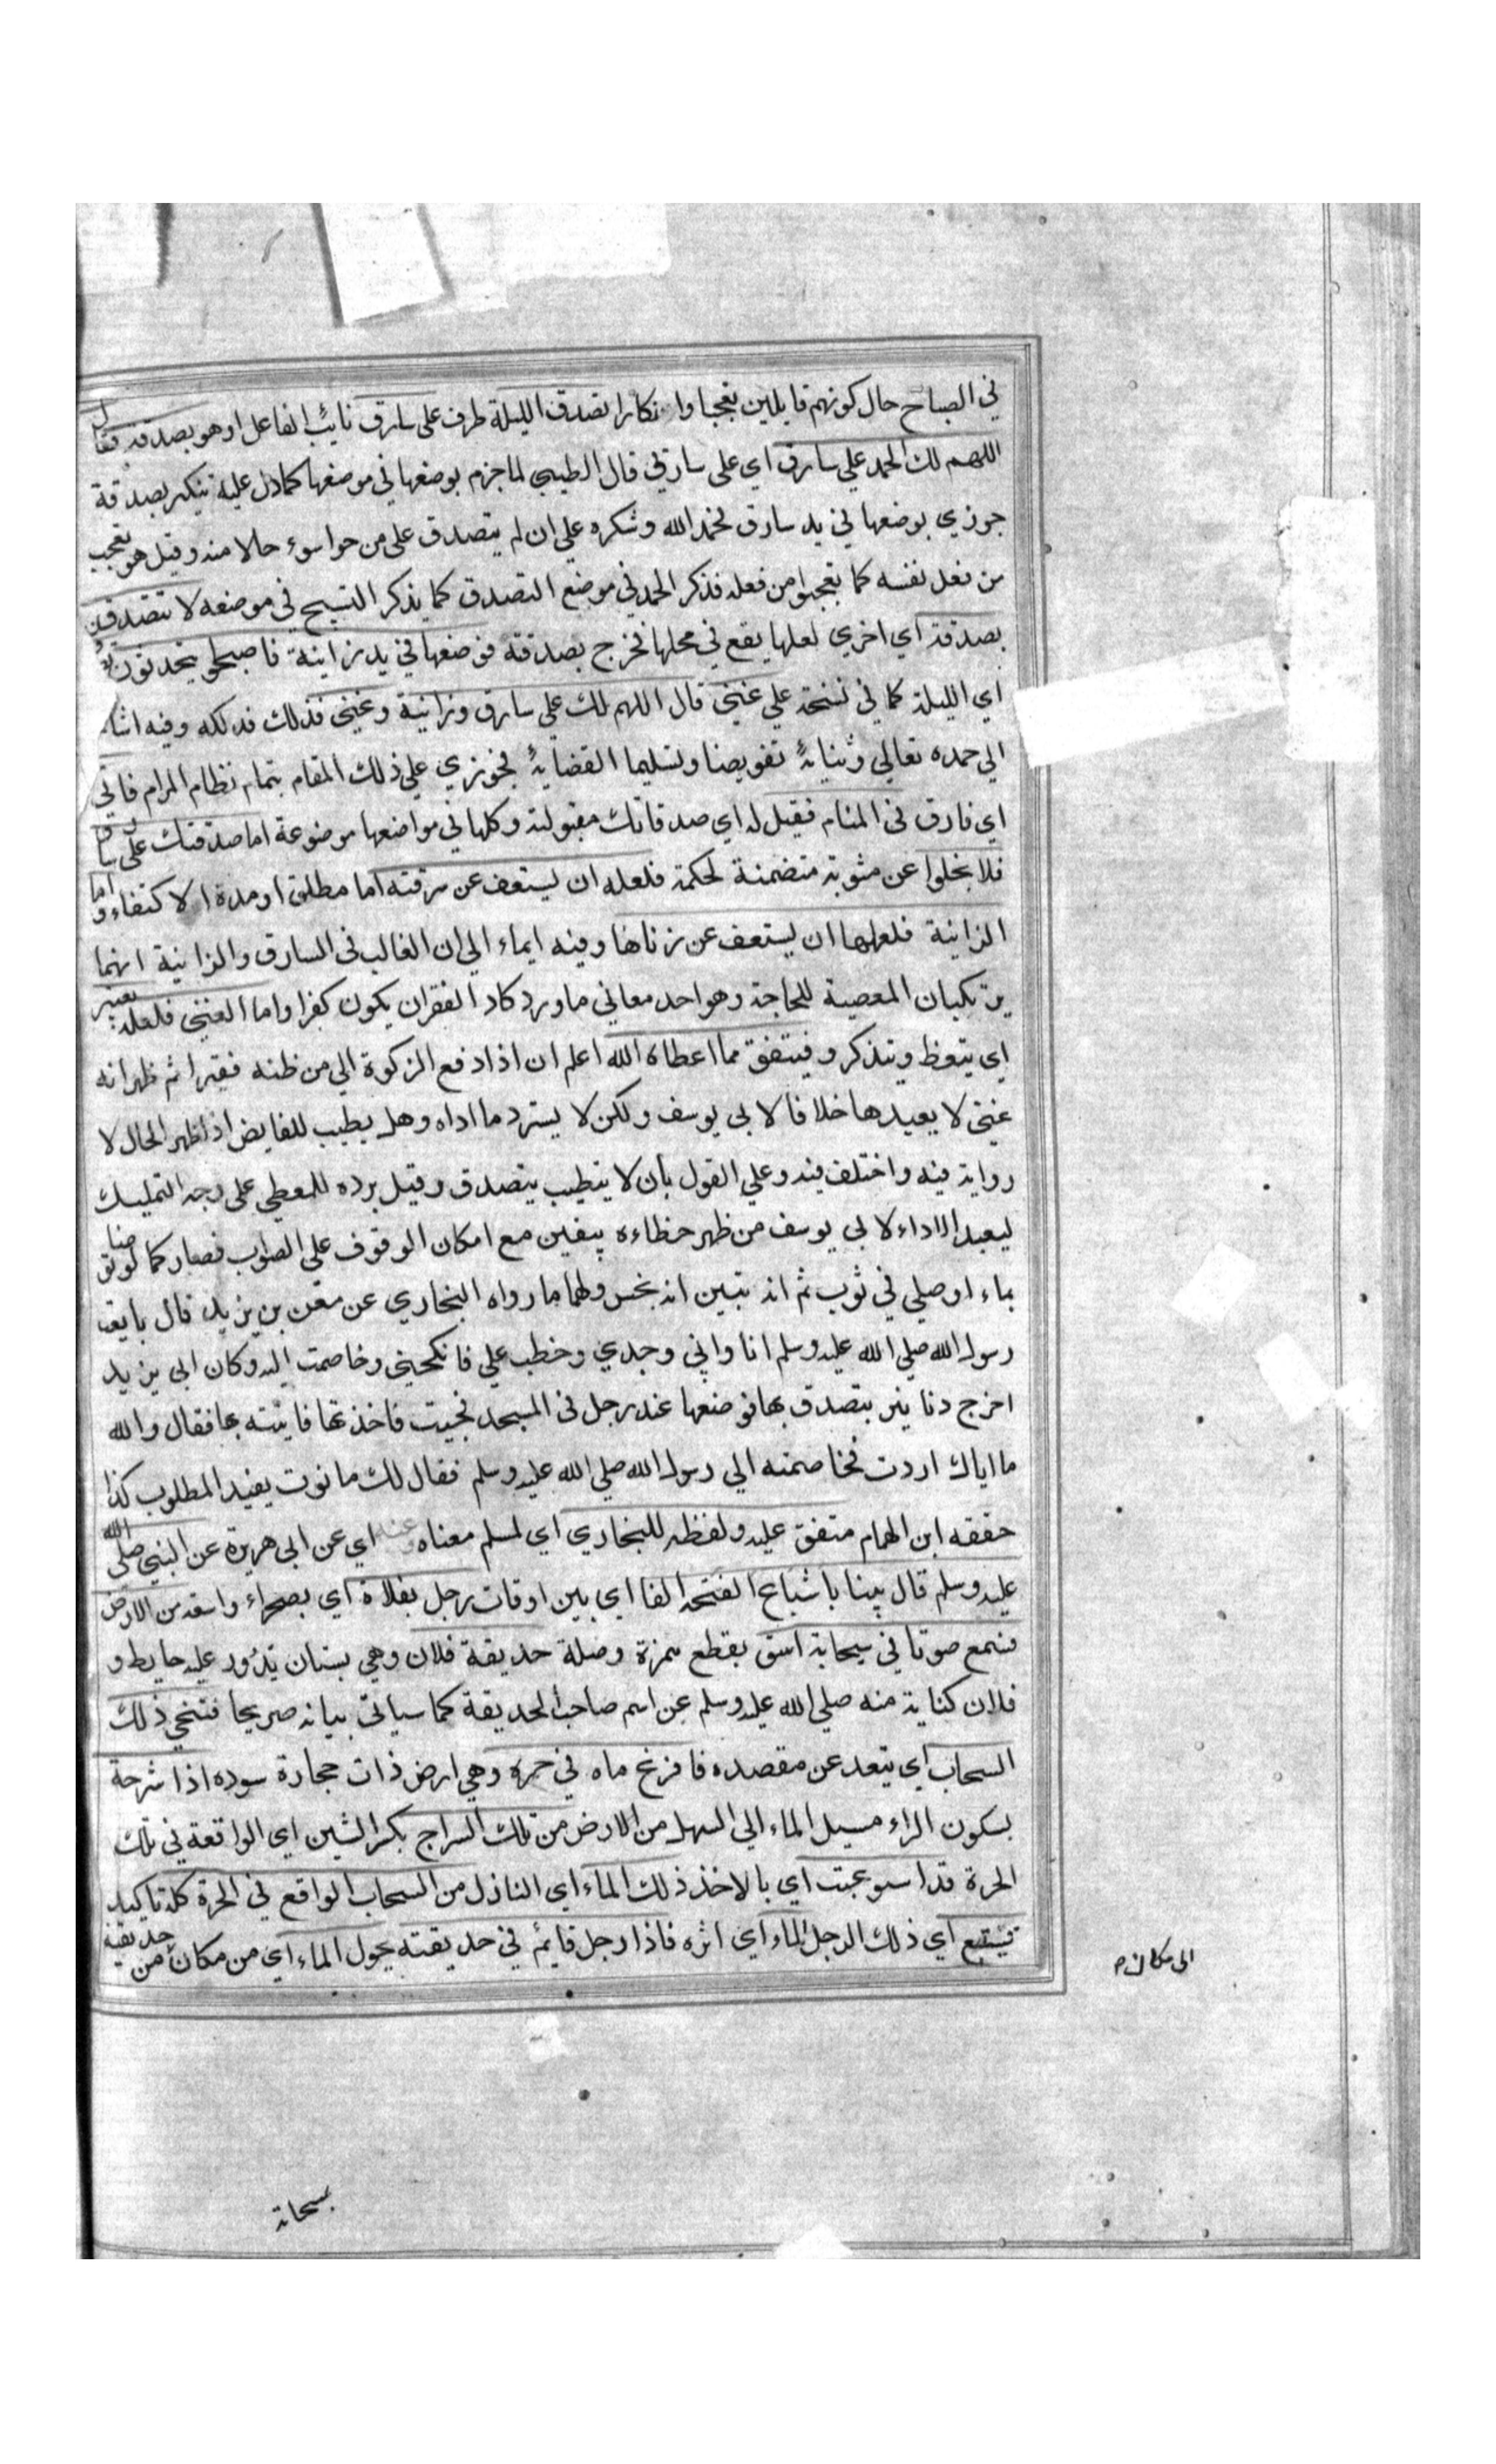 في الصباح حال كونهم قايلين تعجبا وانكارا تصدق الليلة طرف على سارق نايب الفاعل او هو بصدقة فقال
اللهم لك الحمد علي سارق اي على سارق قال الطيبي لما جزم بوضعها في موضعها كما دل عليه تنكير بصدقة
جوزي بوضعها في يد سارق فحمد الله وشكره علي ان لم يتصدق على من هو اسوء حالا منه وقيل هو تعجب
من فعل نفسه كما تعجبوا من فعله فذكر الحمد في موضع التصدق كما يذكر التسبيح في موضعه لا تتصدقن
بصدقة اي اخري لعلها يقع في محلها فخرج بصدقة فوضعها في يد زانية فاصبحوا يتحدثون
اي الليلة كما في نسخة علي غني قال اللهم لك علي سارق وزانية وغني فذلك فدلكه وفيه اشا
الي حمده تعالي وثنائه تفويضا وتسليما القضائه فجوزي علي ذلك المقام بتمام نظام المرام فاتي
اي فارق في المنام فقيل له اي صدقاتك مقبولة وكلها في مواضعها موضوعة اما صدقتك على سارق
فلا يخلوا عن مثوبة متضمنة لحكمة فلعله ان يستعف عن سرقته اما مطلق او مدة الاكتفاء واما
الزانية فلعلها ان يستعف عن زناها وفيه ايماء الي ان الغالب في السارق والزانية انهما
يرتكبان المعصية للحاجة وهو احد معاني ما ورد كاد الفقر ان يكون كفرا واما الغني فلعله يعتبر
اي يتعظ ويتذكر و فيتفق مما اعطاه الله اعلم ان اذا دفع الزكوة الي من ظنه فقيرا ثم ظهر انه
غني لا يعيدها خلافا لابي يوسف ولكن لا يسترد ما اداه وهل يطيب للقابض اذا ظهر الحال لا
رواية فيه واختلف فيه وعلي القول بان لا يتطيب يتصدق وقيل يرده للمعطي على وجه التمليك
ليعيد الاداء لابي يوسف من ظهر خطاءه بيقين مع امكان الوقوف على الصواب فصار كما لو توضا
بماء او صلي في ثوب ثم انه تبين انه نجس ولهما ما رواه البخاري عن معن بن يزيد قال بايعت
رسول الله صلي الله عليه وسلم انا وابي وجدي وخطب علي فانكحني وخاصمت اليه وكان ابي يزيد
اخرج دنانير يتصدق بها فوضعها عند رجل في المسجد فجيت فاخذتها فاتيته بها فقال والله
ما اياك اردت فخاصمته الي رسول الله صلي الله عليه وسلم فقال لك ما نوت يفيد المطلوب كذا
حققه ابن الهمام متفق عليه ولفظه للبخاري اي لمسلم معناه وعنه اي عن ابي هريرة عن النبي صلي الله
عليه وسلم قال بينا باشباع الفتحه الفا اي بين اوقات رجل بفلاة اي بصحراء واسعه من الارض
فسمع صوتا في سحابة اسق بقطع همزة وصلة حديقة فلان وهي بستان يدور عليه حايط و
فلان كناية منه صلي الله عليه وسلم عن اسم صاحب الحديقة كما سياتي بيانه صريحا فتنحي ذلك
السحاب اي تبعد عن مقصده فافرغ ماه في حره وهي ارض ذات حجارة سوده اذا شرجة
بسكون الراء مسيل الماء الي السهل من الارض من تلك السراج بكر الشين اي الواقعة في تلك
الحرة قد استوعبت اي بالاخذ ذلك الماء اي النازل من السحاب الواقع في الحرة كله تاكيد
فيتتبع اي ذلك الرجل الماء اي اثره فاذا رجل قائم في حديقته يحول الماء اي من مكان من حديقته
الى مكان م
بمسحاته